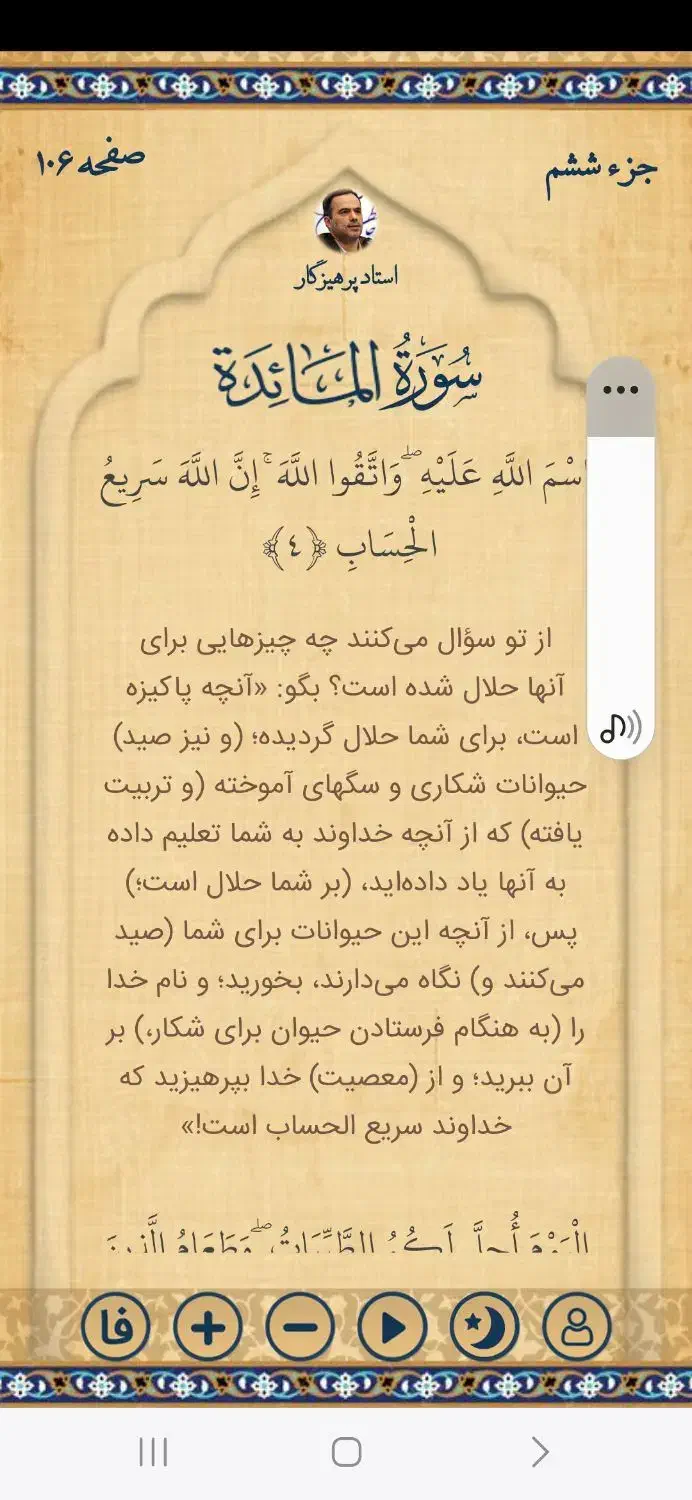 جزء ششم
صفحه ۱۰۶
استاد پرهیزگار
سُورَةُ المَائِدَة
اسْمَ اللَّهِ عَلَيْهِ ۖ وَاتَّقُوا اللَّهَ ۚ إِنَّ اللَّهَ سَرِيعُ
الْحِسَابِ ﴿٤﴾
از تو سؤال می‌کنند چه چیزهایی برای
آنها حلال شده است؟ بگو: «آنچه پاکیزه
است، برای شما حلال گردیده؛ (و نیز صید)
حیوانات شکاری و سگهای آموخته (و تربیت
یافته) که از آنچه خداوند به شما تعلیم داده
به آنها یاد داده‌اید، (بر شما حلال است؛)
پس، از آنچه این حیوانات برای شما (صید
می‌کنند و) نگاه می‌دارند، بخورید؛ و نام خدا
را (به هنگام فرستادن حیوان برای شکار،) بر
آن ببرید؛ و از (معصیت) خدا بپرهیزید که
خداوند سریع الحساب است!»
الْيَوْمَ أُحِلَّ لَكُمُ الطَّيِّبَاتُ ۖ وَطَعَامُ الَّذِينَ
فا